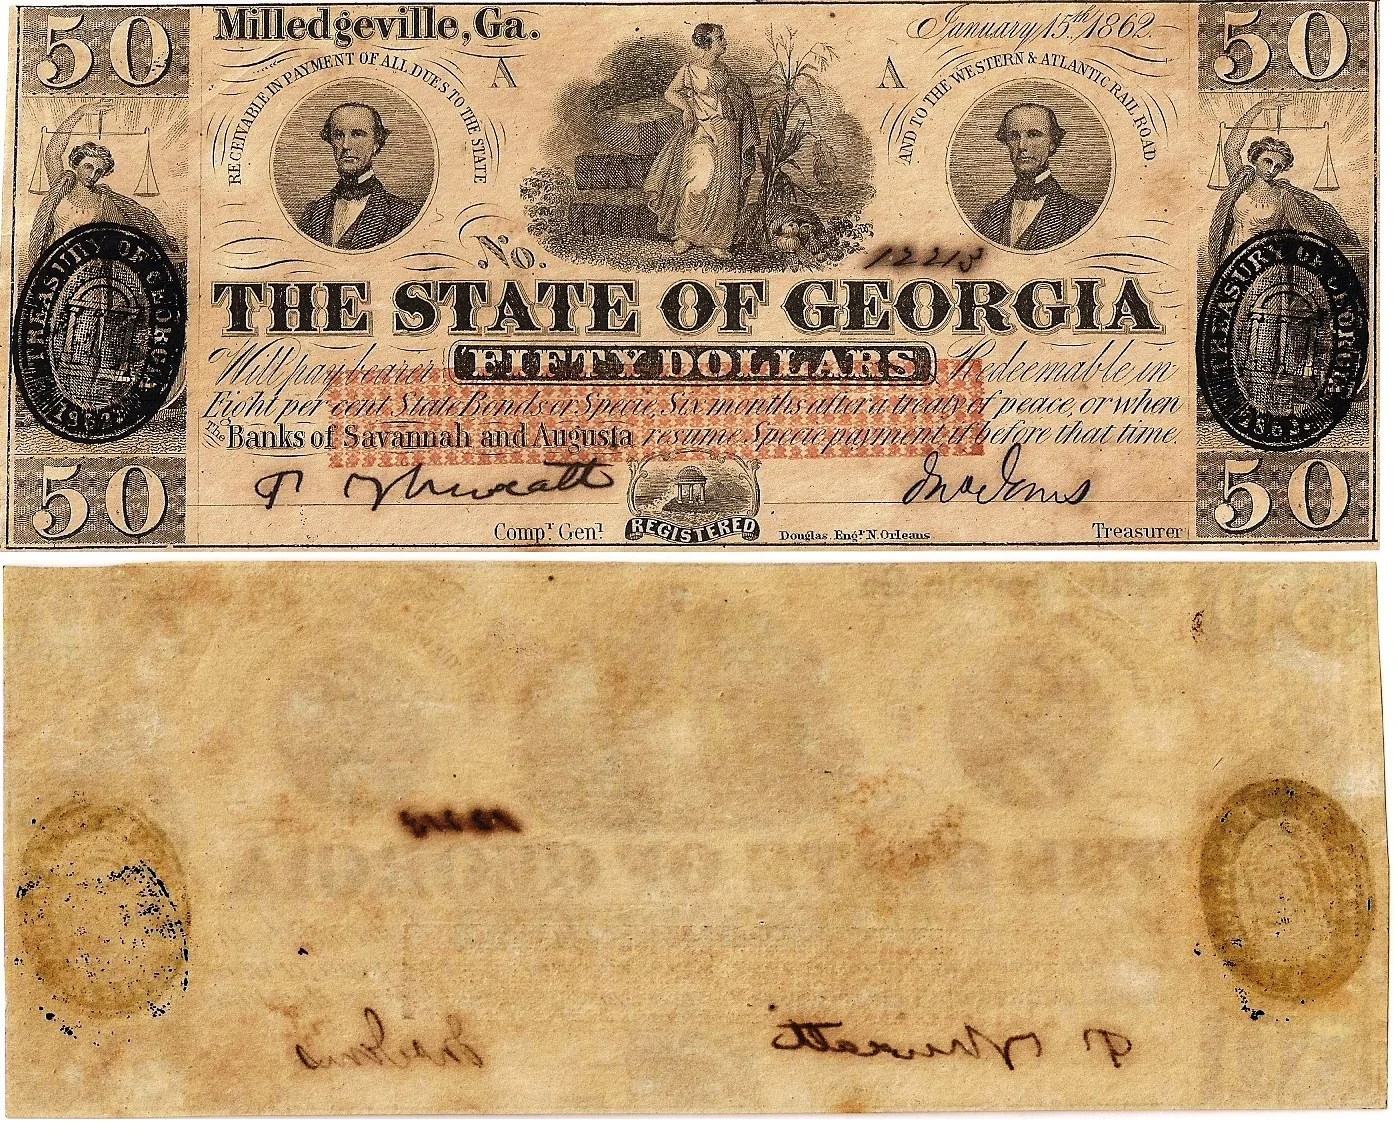 50
Milledgeville, Ga.
January 15th 1862.
50
RECEIVABLE IN PAYMENT OF ALL DUES TO THE STATE
A
A
AND TO THE WESTERN & ATLANTIC RAIL ROAD.
No. 12213
TREASURY OF GEORGIA
1862
TREASURY OF GEORGIA
THE STATE OF GEORGIA
Will pay bearer FIFTY DOLLARS Redeemable in
Eight per cent State Bonds or Specie, Six months after a treaty of peace, or when
The Banks of Savannah and Augusta resume Specie payment if before that time.
50
Jno Jones
50
Compr. Genl.
REGISTERED
Douglas. Engr. N. Orleans
Treasurer